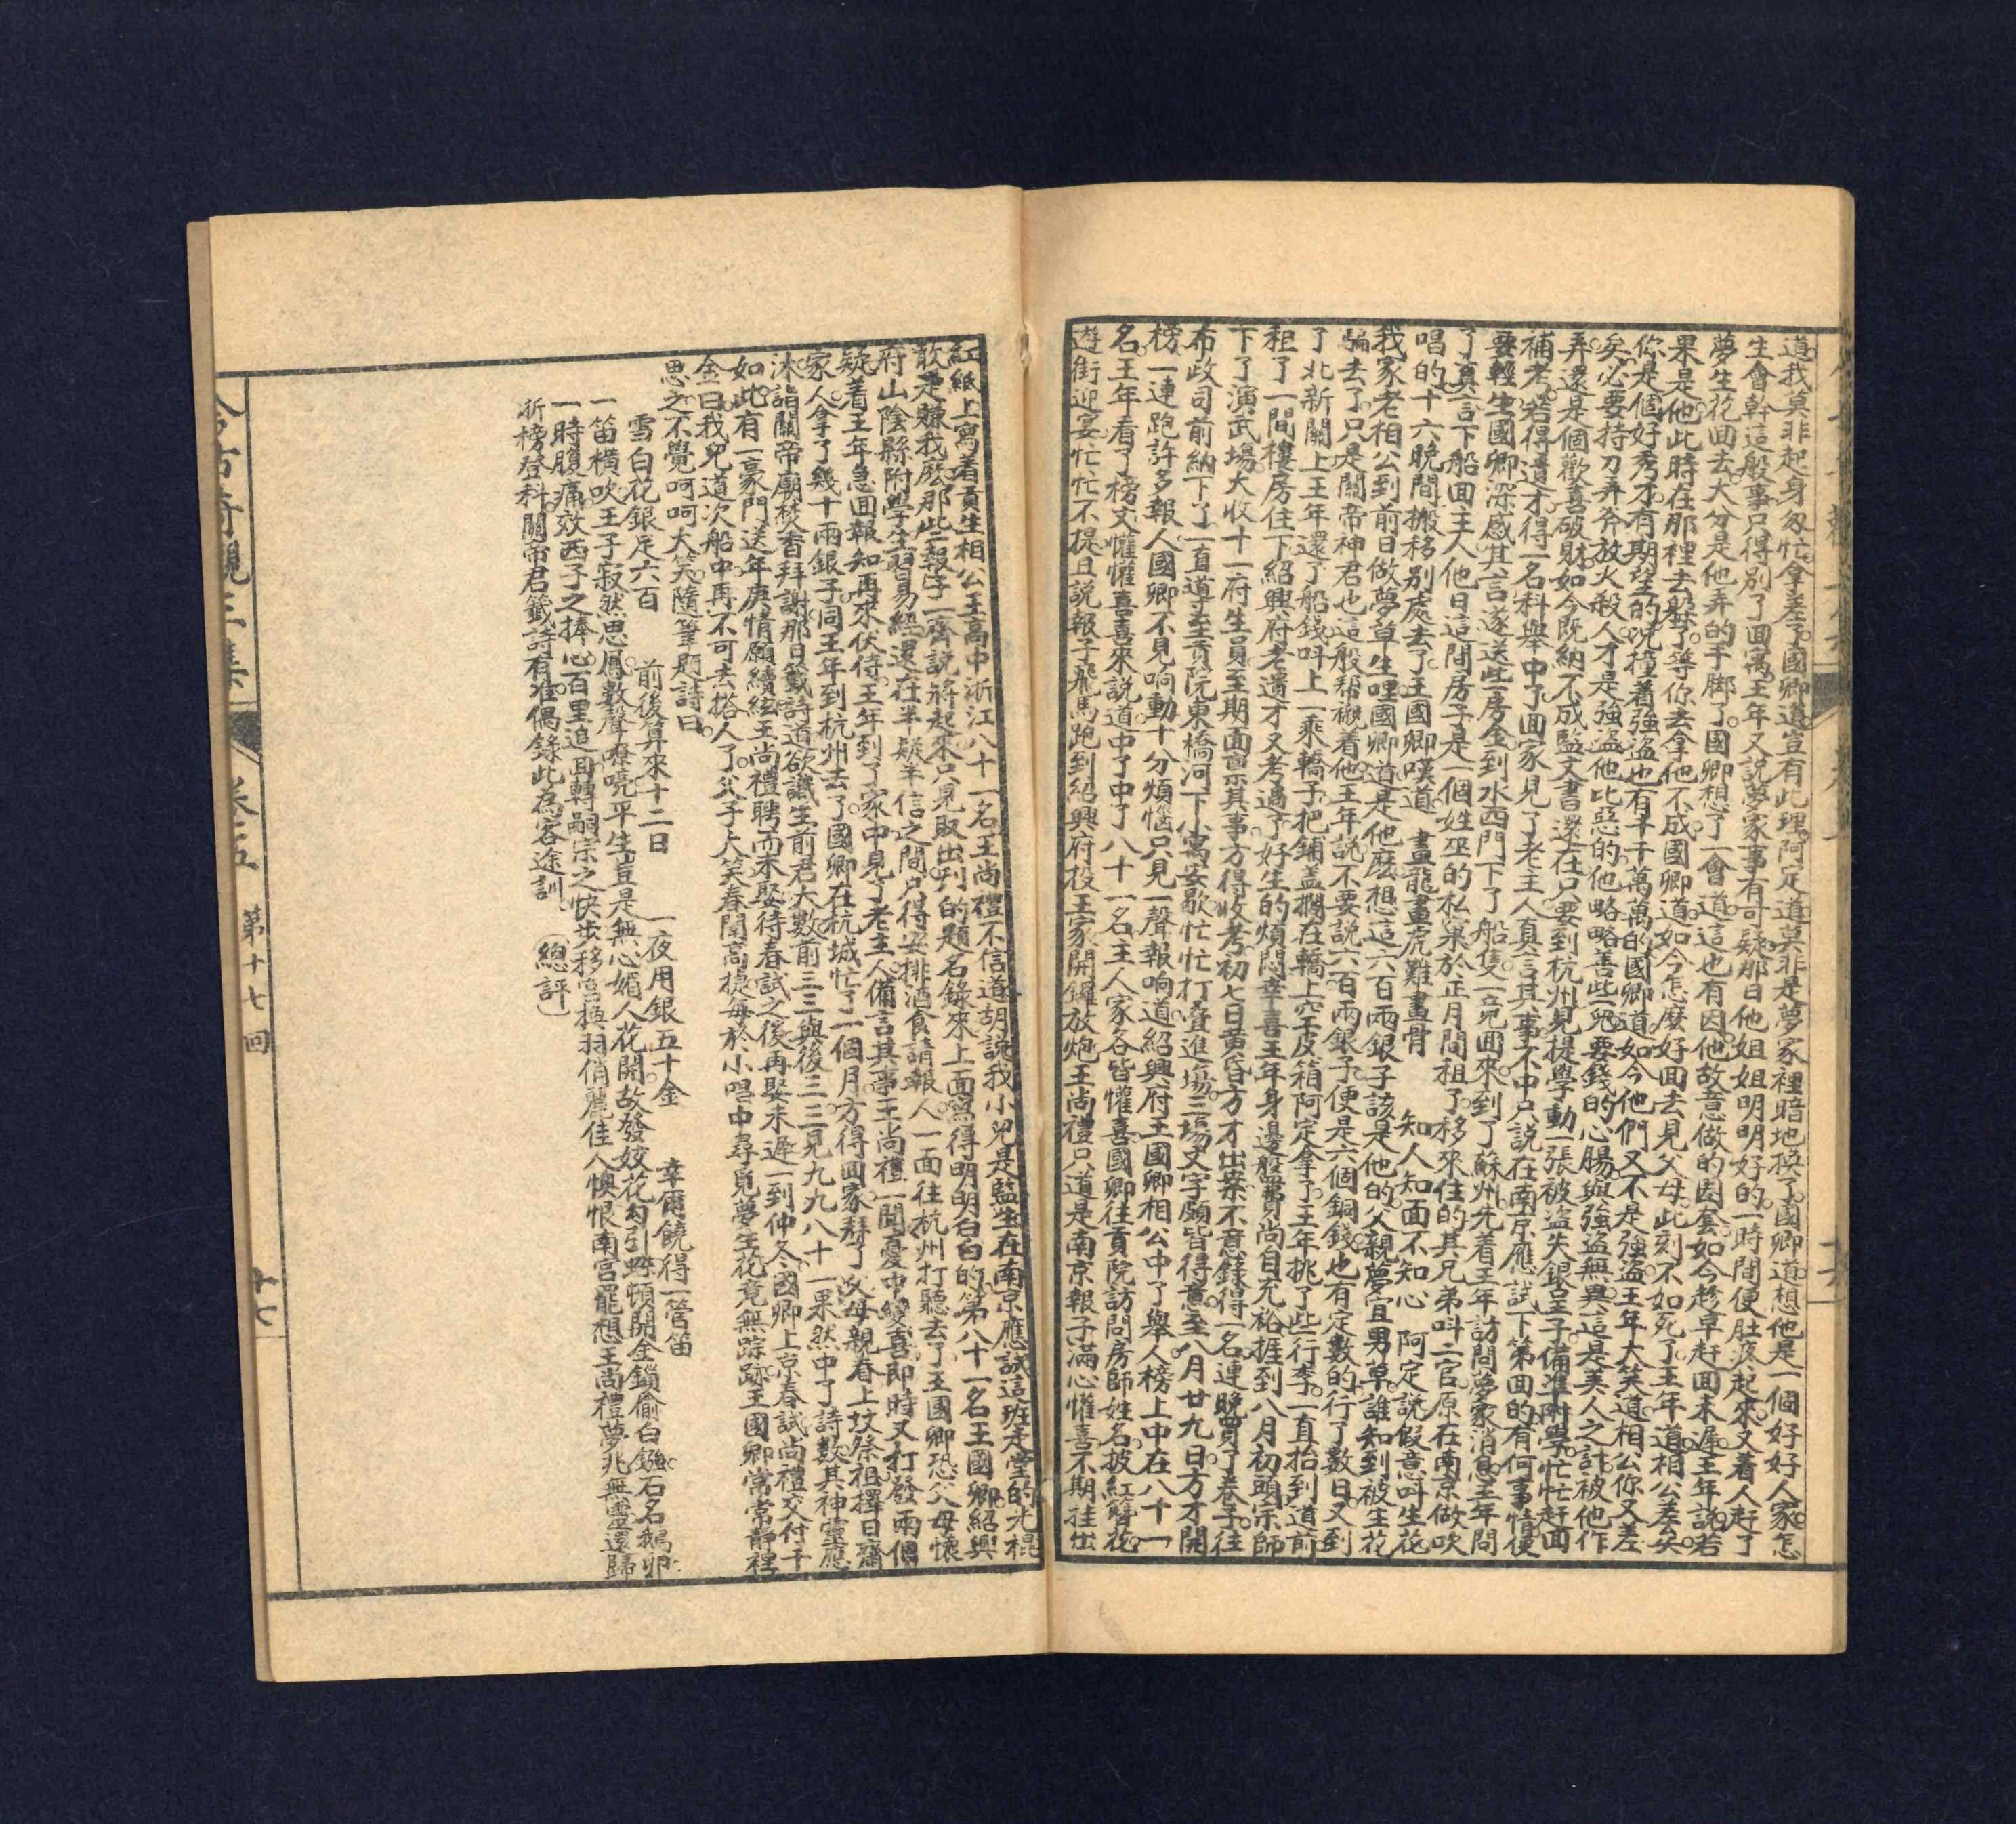 道我莫非起身匆忙拿差了國卿道豈有此理阿定道莫非是夢家裡暗地換了國卿道想他是一個好好人家怎
生會幹這般事只得別了回寓王年又說夢家事有可疑那日他姐姐明明好的一時間便肚疼起來又着人赶了
夢生花回去大分是他弄的手脚了國卿想了一會道這也有因他故意做的圈套如今趁早赶回未遲王年說若
果是他此時在那裡去躲了等你去拿他不成國卿道如今怎麽好回去見父母此刻不如死了王年道相公差矣
你是個好秀才有期望的况撞着強盜也有千千萬萬的國卿道如今他們又不是強盜王年大笑道相公你又差
矣必要持刀弄斧放火殺人才是強盜他比惡的他略略善些兒要錢的心腸與強盜無異這是美人之計被他作
弄還是個歡喜破財如今既納不成監文書還在只要到杭州見提學動一張被盜失銀呈子備准附學忙忙赶回
補考若得遺才得一名科舉中了回家見了老主人真言其事不中只說在南京應試下第回的有何事情便
要輕生國卿深感其言遂送些房金到水西門下了船隻一竟回來到了蘇州先着王年訪問夢家消息王年問
了真言下船回主人他日這間房子是一個姓巫的私窠於正月間租了移來住的其兄弟呌二官原在南京做吹
唱的十六晚間搬移別處去了王國卿嘆道 畫龍畫虎難畫骨 知人知面不知心 阿定說假意呌生花
我家老相公到前日做夢草生哩國卿道是他麽想這六百兩銀子該是他的父親夢宜男草誰知到被生花
騙去了只是關帝神君也這般帮襯着他王年說不要說六百兩銀子便是六個銅錢也有定數的行了數日又到
了北新關上王年還了船錢呌上一乘轎子把鋪盖擱在轎上空皮箱阿定拿了王年挑了些行李一直抬到道前
租了一間樓房住下紹興府老遺才又考過了好生的煩悶幸喜王年身邊盤費尚自充裕捱到八月初頭宗師
下了演武場大收十一府生員至期面稟其事方得收考初七日黄昏方才出案不意錄得一名連晚買了卷子往
布政司前納下了一直道至貢院東橋河下寓安歇忙忙打叠進塲三塲文字頗皆得意至八月廿九日方才開
榜一連跑許多報人國卿不見响動十分煩惱只見一聲報响道紹興府王國卿相公中了舉人榜上中在八十一
名王年看了榜文懽懽喜喜來說道中了中了八十一名主人家各皆懽喜國卿往貢院訪問房師姓名披紅簪花
遊街迎宴忙忙不提且說報子飛馬跑到紹興府投王家開鑼放炮王尚禮只道是南京報子滿心懽喜不期挂出
紅紙上寫着貢生相公王高中浙江八十一名王尚禮不信道胡說我小兒是監生在南京應試這班走堂的光棍
敢是賺我麽那些報子一齊說將起來只見取出刋的題名錄來上面寫得明明白白的第八十一名王國卿紹興
府山陰縣附學生習易經還在半疑半信之間只得安排酒食請報人一面往杭州打聽去了王國卿恐父母懷
疑着王年急回報知再來伏侍王年到了家中見了老主人備言其事王尚禮一聞憂中變喜即時又打發兩個
家人拿了幾十兩銀子同王年到杭州去了國卿在杭城忙了二個月方得回家拜了父母親眷上坟祭祖擇日齋
沐詣關帝廟焚香拜謝那日籤詩道欲識生前君大數前三三與後三三見九九八十一果然中了詩數其神靈應
如此有一豪門送年庚情願續絃王尚禮聘而未娶待春試之後再娶未遲一到仲冬國卿上京春試尚禮交付千
金曰我兒道次船中再不可去搭人了父子大笑春闈高捷每於小唱中尋覓夢生花竟無踪跡王國卿常常靜裡
思之不覺呵呵大笑隨筆題詩曰
雪白花銀足六百 前後算來十二日 一夜用銀五十金 幸爾饒得一管笛
一笛橫吹王子寂然思鳳數聲嘹喨平生豈是無心媚人花開故發姣花勾引蝶頓開金鎖偷白鏹石名鵝卵
一時腹痛效西子之捧心百里追回轉嗣宗之快步移宫換羽俏麗佳人懊恨南宫罷想王尚禮夢兆無靈還歸
浙榜登科關帝君籤詩有准偶錄此為客途訓 總評
今古奇觀三集 卷五 第十七回 十七